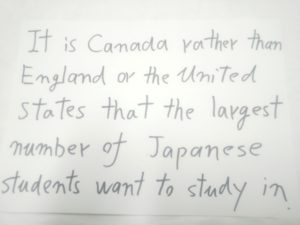 It is Canada rather than
England or the United
States that the largest
number of Japanese
students want to study in.